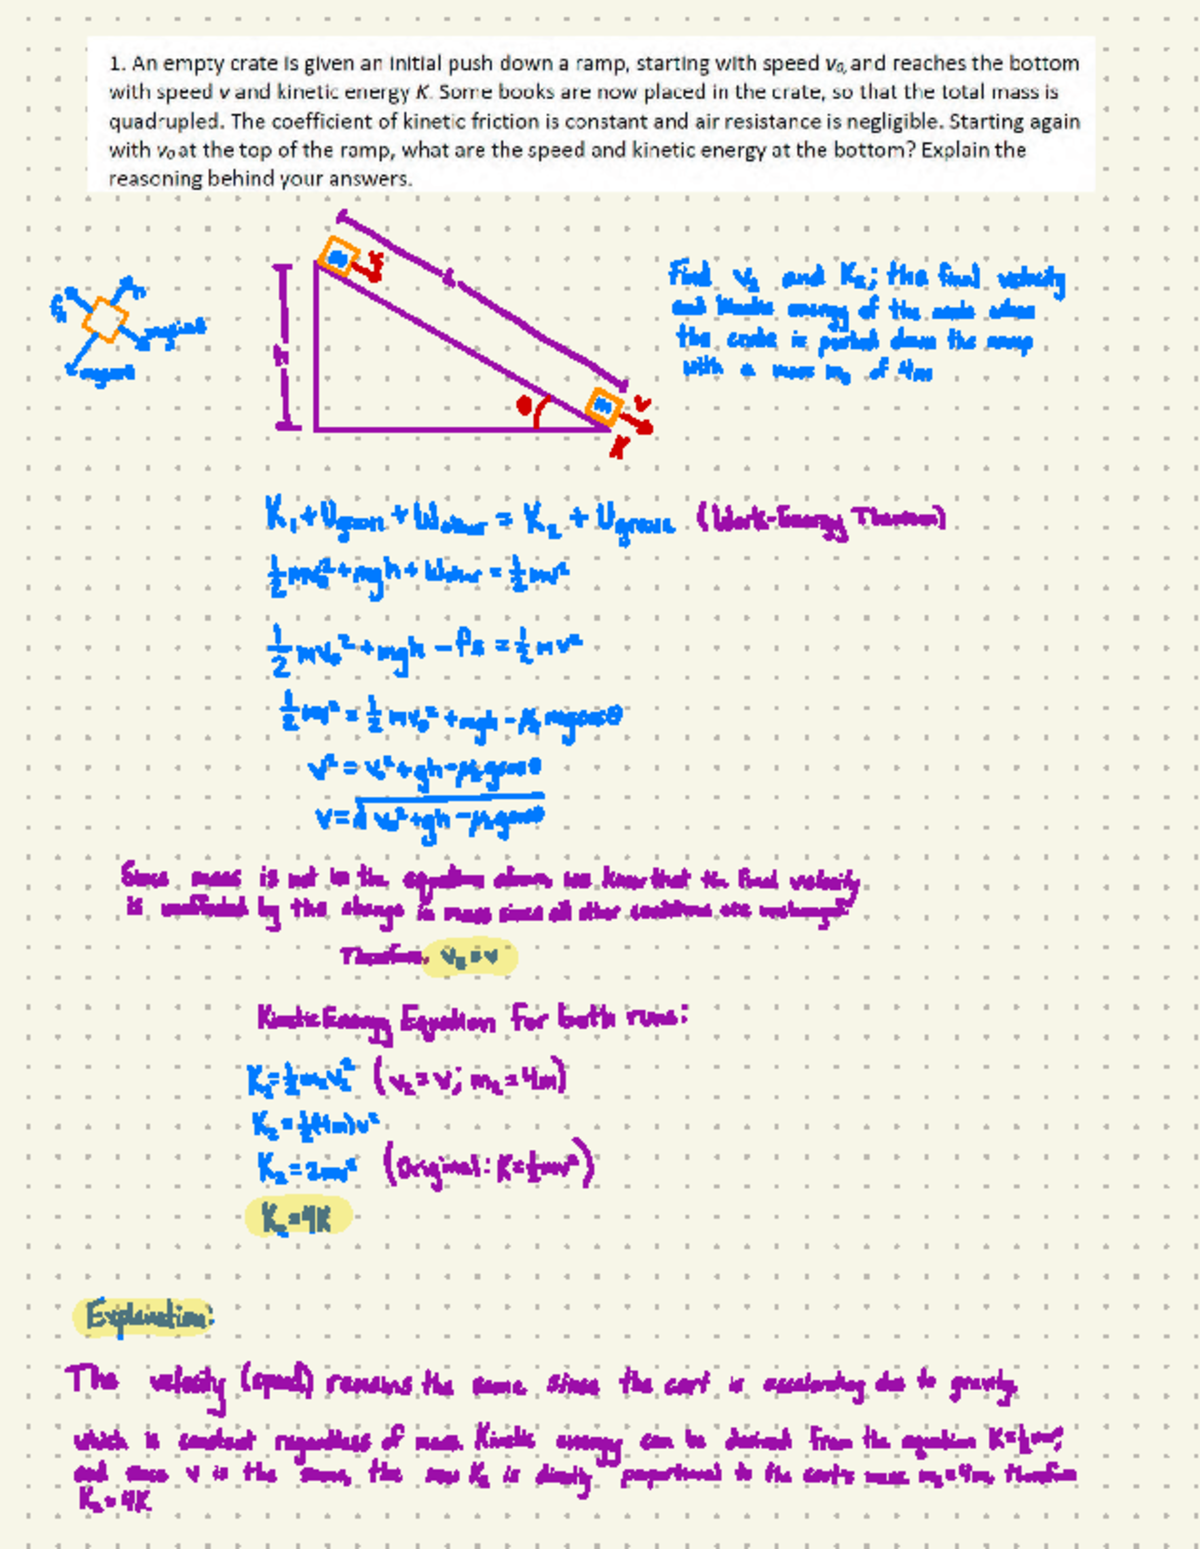 1. An empty crate is given an initial push down a ramp, starting with speed v₀, and reaches the bottom
with speed v and kinetic energy K. Some books are now placed in the crate, so that the total mass is
quadrupled. The coefficient of kinetic friction is constant and air resistance is negligible. Starting again
with v₀ at the top of the ramp, what are the speed and kinetic energy at the bottom? Explain the
reasoning behind your answers.
Find v₂ and K₂; the final velocity
and kinetic energy of the crate when
the crate is pushed down the ramp
with a mass m₂ of 4m
h
θ
m
v
K
K₁ + Ugrav + Wother = K₂ + Ugrav (Work-Energy Theorem)
½mv₀² + mgh + Wother = ½mv²
½mv₀² + mgh - fs = ½mv²
½mv² = ½mv₀² + mgh - μₖmgcosθ
v² = v₀² + gh - μₖgcosθ
v = √v₀² + gh - μₖgcosθ
Since mass is not in the equation above, we know that the final velocity
is unaffected by the change in mass since all other conditions are unchanged.
Therefore, v₂ = v
Kinetic Energy Equation for both runs:
K₂ = ½m₂v₂² (v₂ = v; m₂ = 4m)
K₂ = ½(4m)v²
K₂ = 2mv² (Original: K = ½mv²)
K₂ = 4K
Explanation:
The velocity (speed) remains the same since the cart is accelerating due to gravity,
which is constant regardless of mass. Kinetic energy can be derived from the equation K = ½mv²,
and since v is the same, the new K₂ is directly proportional to the cart's mass m₂ = 4m, therefore
K₂ = 4K.